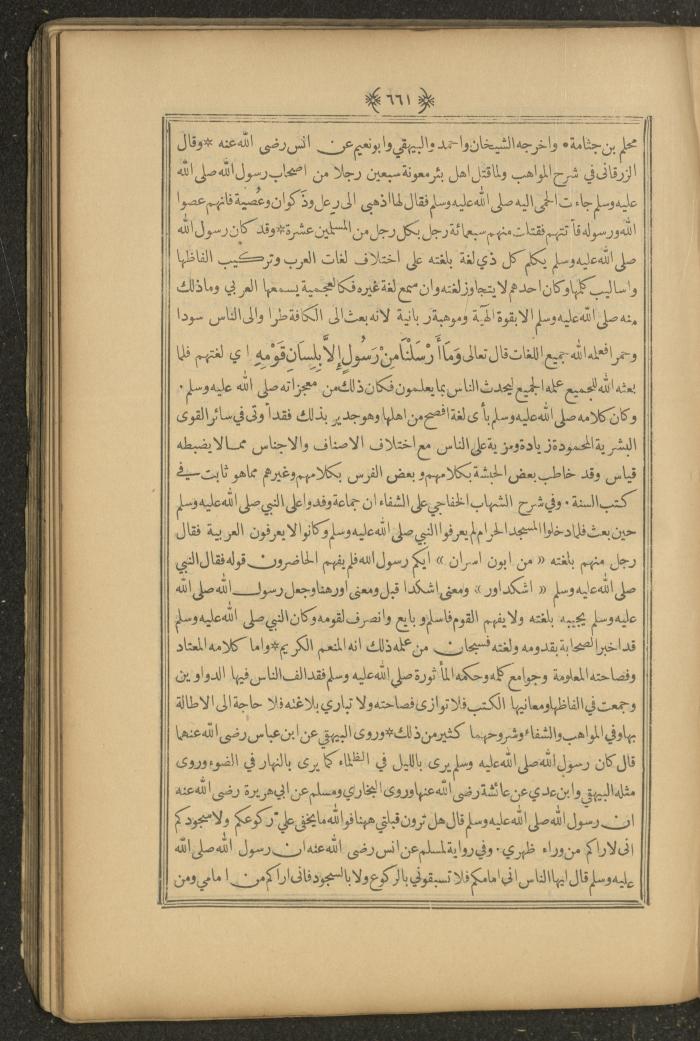 ﴿ ٦٦١ ﴾
محلم بن جثامة • واخرجه الشيخان واحمد والبيهقي وابونعيم عن انس رضى الله عنه * وقال
الزرقانى في شرح المواهب ولما قتل اهل بئر معونة سبعين رجلا من اصحاب رسول الله صلى الله
عليه وسلم جاءت الحمى اليه صلى الله عليه وسلم فقال لها اذهبى الى رعل وذكوان وعُصية فانهم عصوا
الله ورسوله فأتتهم فقتلت منهم سبعمائة رجل بكل رجل من المسلمين عشرة * وقد كان رسول الله
صلى الله عليه وسلم يكلم كل ذي لغة بلغته على اختلاف لغات العرب وتركيب الفاظها
واساليب كلمها وكان احدهم لا يتجاوز لغته وان سمع لغة غيره فكالعجمية يسمعها العربي وماذلك
منه صلى الله عليه وسلم الا بقوة الهية وموهبة ربانية لانه بعث الى الكافة طرا والى الناس سودا
وحمرا فعلمه الله جميع اللغات قال تعالى وَمَا أَرْسَلْنَا مِنْ رَسُولٍ إِلاَّ بِلِسَانِ قَوْمِهِ اي لغتهم فلما
بعثه الله للجميع علمه الجميع ليحدث الناس بما يعلمون فكان ذلك من معجزاته صلى الله عليه وسلم •
وكان كلامه صلى الله عليه وسلم بأى لغة افصح من اهلها وهو جدير بذلك فقد أوتى في سائر القوى
البشرية المحمودة زيادة ومزية على الناس مع اختلاف الاصناف والاجناس ممــا لا يضبطه
قياس وقد خاطب بعض الحبشة بكلامهم و بعض الفرس بكلامهم وغيرهم مما هو ثابت في
كتب السنة • وفي شرح الشهاب الخفاجي على الشفاء ان جماعة وفدوا على النبي صلى الله عليه وسلم
حين بعث فلما دخلوا المسجد الحرام لم يعرفوا النبي صلى الله عليه وسلم وكانوا لا يعرفون العربية فقال
رجل منهم بلغته « من ابون اسران » ايكم رسول الله فلم يفهم الحاضرون قوله فقال النبي
صلى الله عليه وسلم « اشكد اور » ومعنى اشكد اقبل ومعنى اور هنا وجعل رسول الله صلى الله
عليه وسلم يجيبه بلغته ولا يفهم القوم فاسلم و بايع وانصرف لقومه وكان النبي صلى الله عليه وسلم
قد اخبر الصحابة بقدومه ولغته فسبحان من علمه ذلك انه المنعم الكريم * واما كلامه المعتاد
وفصاحته المعلومة وجوامع كلمه وحكمه المأثورة صلى الله عليه وسلم فقد الف الناس فيها الدواوين
وجمعت في الفاظها ومعانيها الكتب فلا توازى فصاحته ولا تباري بلاغته فلا حاجة الى الاطالة
بها وفي المواهب والشفاء وشروحهما كثير من ذلك * وروى البيهقي عن ابن عباس رضى الله عنهما
قال كان رسول الله صلى الله عليه وسلم يرى بالليل في الظلماء كما يرى بالنهار في الضوء وروى
مثله البيهقي وابن عدي عن عائشة رضى الله عنها وروى البخاري ومسلم عن ابي هريرة رضى الله عنه
ان رسول الله صلى الله عليه وسلم قال هل ترون قبلتي ههنا فوالله ما يخفى علي ركوعكم ولا سجودكم
انى لاراكم من وراء ظهري • وفي رواية لمسلم عن انس رضى الله عنه ان رسول الله صلى الله
عليه وسلم قال ايها الناس انى امامكم فلا تسبقوني بالركوع ولا بالسجود فانى اراكم من امامي ومن